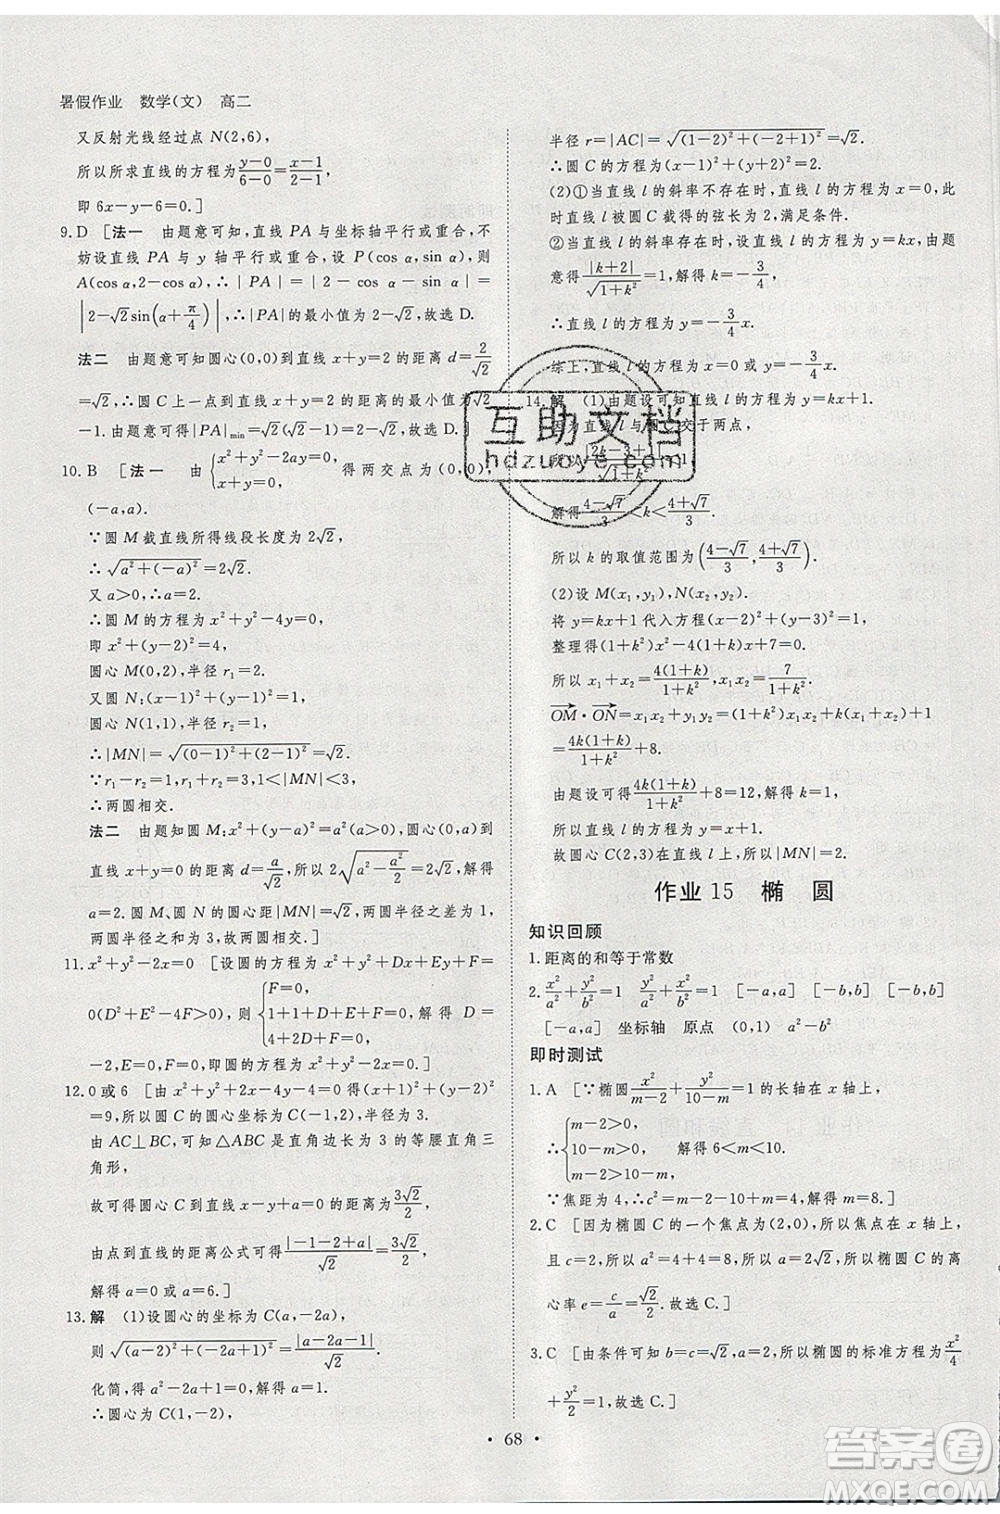 暑假作业 数学(文) 高二
又反射光线经过点 N(2,6),
所以所求直线的方程为 (y-0)/(6-0)=(x-1)/(2-1),
即 6x-y-6=0.]
9.D [法一 由题意可知,直线 PA 与坐标轴平行或重合,不
妨设直线 PA 与 y 轴平行或重合,设 P(cos α,sin α),则
A(cos α,2-cos α),∴|PA|=|2-cos α-sin α|=
|2-√2sin(α+π/4)|,∴|PA|的最小值为 2-√2,故选 D.
法二 由题意可知圆心(0,0)到直线 x+y=2 的距离 d=2/√2
=√2,∴圆 C 上一点到直线 x+y=2 的距离的最小值为√2
-1.由题意可得|PA|min=√2(√2-1)=2-√2,故选 D.]
10.B [法一 由{x²+y²-2ay=0, x+y=0, 得两交点为(0,0),
(-a,a).
∵圆 M 截直线所得线段长度为 2√2,
∴√(a²+(-a)²)=2√2.
又 a>0,∴a=2.
∴圆 M 的方程为 x²+y²-4y=0,
即 x²+(y-2)²=4,
圆心 M(0,2),半径 r₁=2.
又圆 N:(x-1)²+(y-1)²=1,
圆心 N(1,1),半径 r₂=1,
∴|MN|=√((0-1)²+(2-1)²)=√2.
∵r₁-r₂=1,r₁+r₂=3,1<|MN|<3,
∴两圆相交.
法二 由题知圆 M:x²+(y-a)²=a²(a>0),圆心(0,a)到
直线 x+y=0 的距离 d=a/√2,所以 2√(a²-a²/2)=2√2,解得
a=2.圆 M、圆 N 的圆心距|MN|=√2,两圆半径之差为 1,
两圆半径之和为 3,故两圆相交.]
11.x²+y²-2x=0 [设圆的方程为 x²+y²+Dx+Ey+F=
0(D²+E²-4F>0),则{F=0, 1+1+D+E+F=0, 4+2D+F=0, 解得 D=
-2,E=0,F=0,即圆的方程为 x²+y²-2x=0.]
12.0 或 6 [由 x²+y²+2x-4y-4=0 得(x+1)²+(y-2)²
=9,所以圆 C 的圆心坐标为 C(-1,2),半径为 3.
由 AC⊥BC,可知△ABC 是直角边长为 3 的等腰直角三
角形,
故可得圆心 C 到直线 x-y+a=0 的距离为 3√2/2,
由点到直线的距离公式可得 |-1-2+a|/√2=3√2/2,
解得 a=0 或 a=6.]
13.解 (1)设圆心的坐标为 C(a,-2a),
则 √((a-2)²+(-2a+1)²)=|a-2a-1|/√2.
化简,得 a²-2a+1=0,解得 a=1.
∴圆心为 C(1,-2),
半径 r=|AC|=√((1-2)²+(-2+1)²)=√2.
∴圆 C 的方程为(x-1)²+(y+2)²=2.
(2)①当直线 l 的斜率不存在时,直线 l 的方程为 x=0,此
时直线 l 被圆 C 截得的弦长为 2,满足条件.
②当直线 l 的斜率存在时,设直线 l 的方程为 y=kx,由题
意得 |k+2|/√(1+k²)=1,解得 k=-3/4,
∴直线 l 的方程为 y=-3/4x.
综上,直线 l 的方程为 x=0 或 y=-3/4x.
14.解 (1)由题设可知直线 l 的方程为 y=kx+1.
因为直线 l 与圆 C 交于两点,
所以 |2k-3+1|/√(1+k²)<1,
解得 (4-√7)/3<k<(4+√7)/3.
所以 k 的取值范围为((4-√7)/3,(4+√7)/3).
(2)设 M(x₁,y₁),N(x₂,y₂).
将 y=kx+1 代入方程(x-2)²+(y-3)²=1,
整理得(1+k²)x²-4(1+k)x+7=0.
所以 x₁+x₂=4(1+k)/(1+k²),x₁x₂=7/(1+k²).
OM·ON=x₁x₂+y₁y₂=(1+k²)x₁x₂+k(x₁+x₂)+1
=4k(1+k)/(1+k²)+8.
由题设可得 4k(1+k)/(1+k²)+8=12,解得 k=1,
所以直线 l 的方程为 y=x+1.
故圆心 C(2,3)在直线 l 上,所以|MN|=2.
作业 15 椭 圆
知识回顾
1.距离的和等于常数
2.x²/a²+y²/b²=1 y²/a²+x²/b²=1 [-a,a] [-b,b] [-b,b]
[-a,a] 坐标轴 原点 (0,1) a²-b²
即时测试
1.A [∵椭圆 x²/(m-2)+y²/(10-m)=1 的长轴在 x 轴上,
∴{m-2>0, 10-m>0, m-2>10-m, 解得 6<m<10.
∵焦距为 4,∴c²=m-2-10+m=4,解得 m=8.]
2.C [因为椭圆 C 的一个焦点为(2,0),所以焦点在 x 轴上,
且 c=2,所以 a²=4+4=8,所以 a=2√2,所以椭圆 C 的离
心率 e=c/a=√2/2.故选 C.]
3.C [由条件可知 b=c=√2,a=2,所以椭圆的标准方程为 x²/4
+y²/2=1.故选 C.]
• 68 •
互助文档
hdzuoye.com
答案卷
MXQE.COM